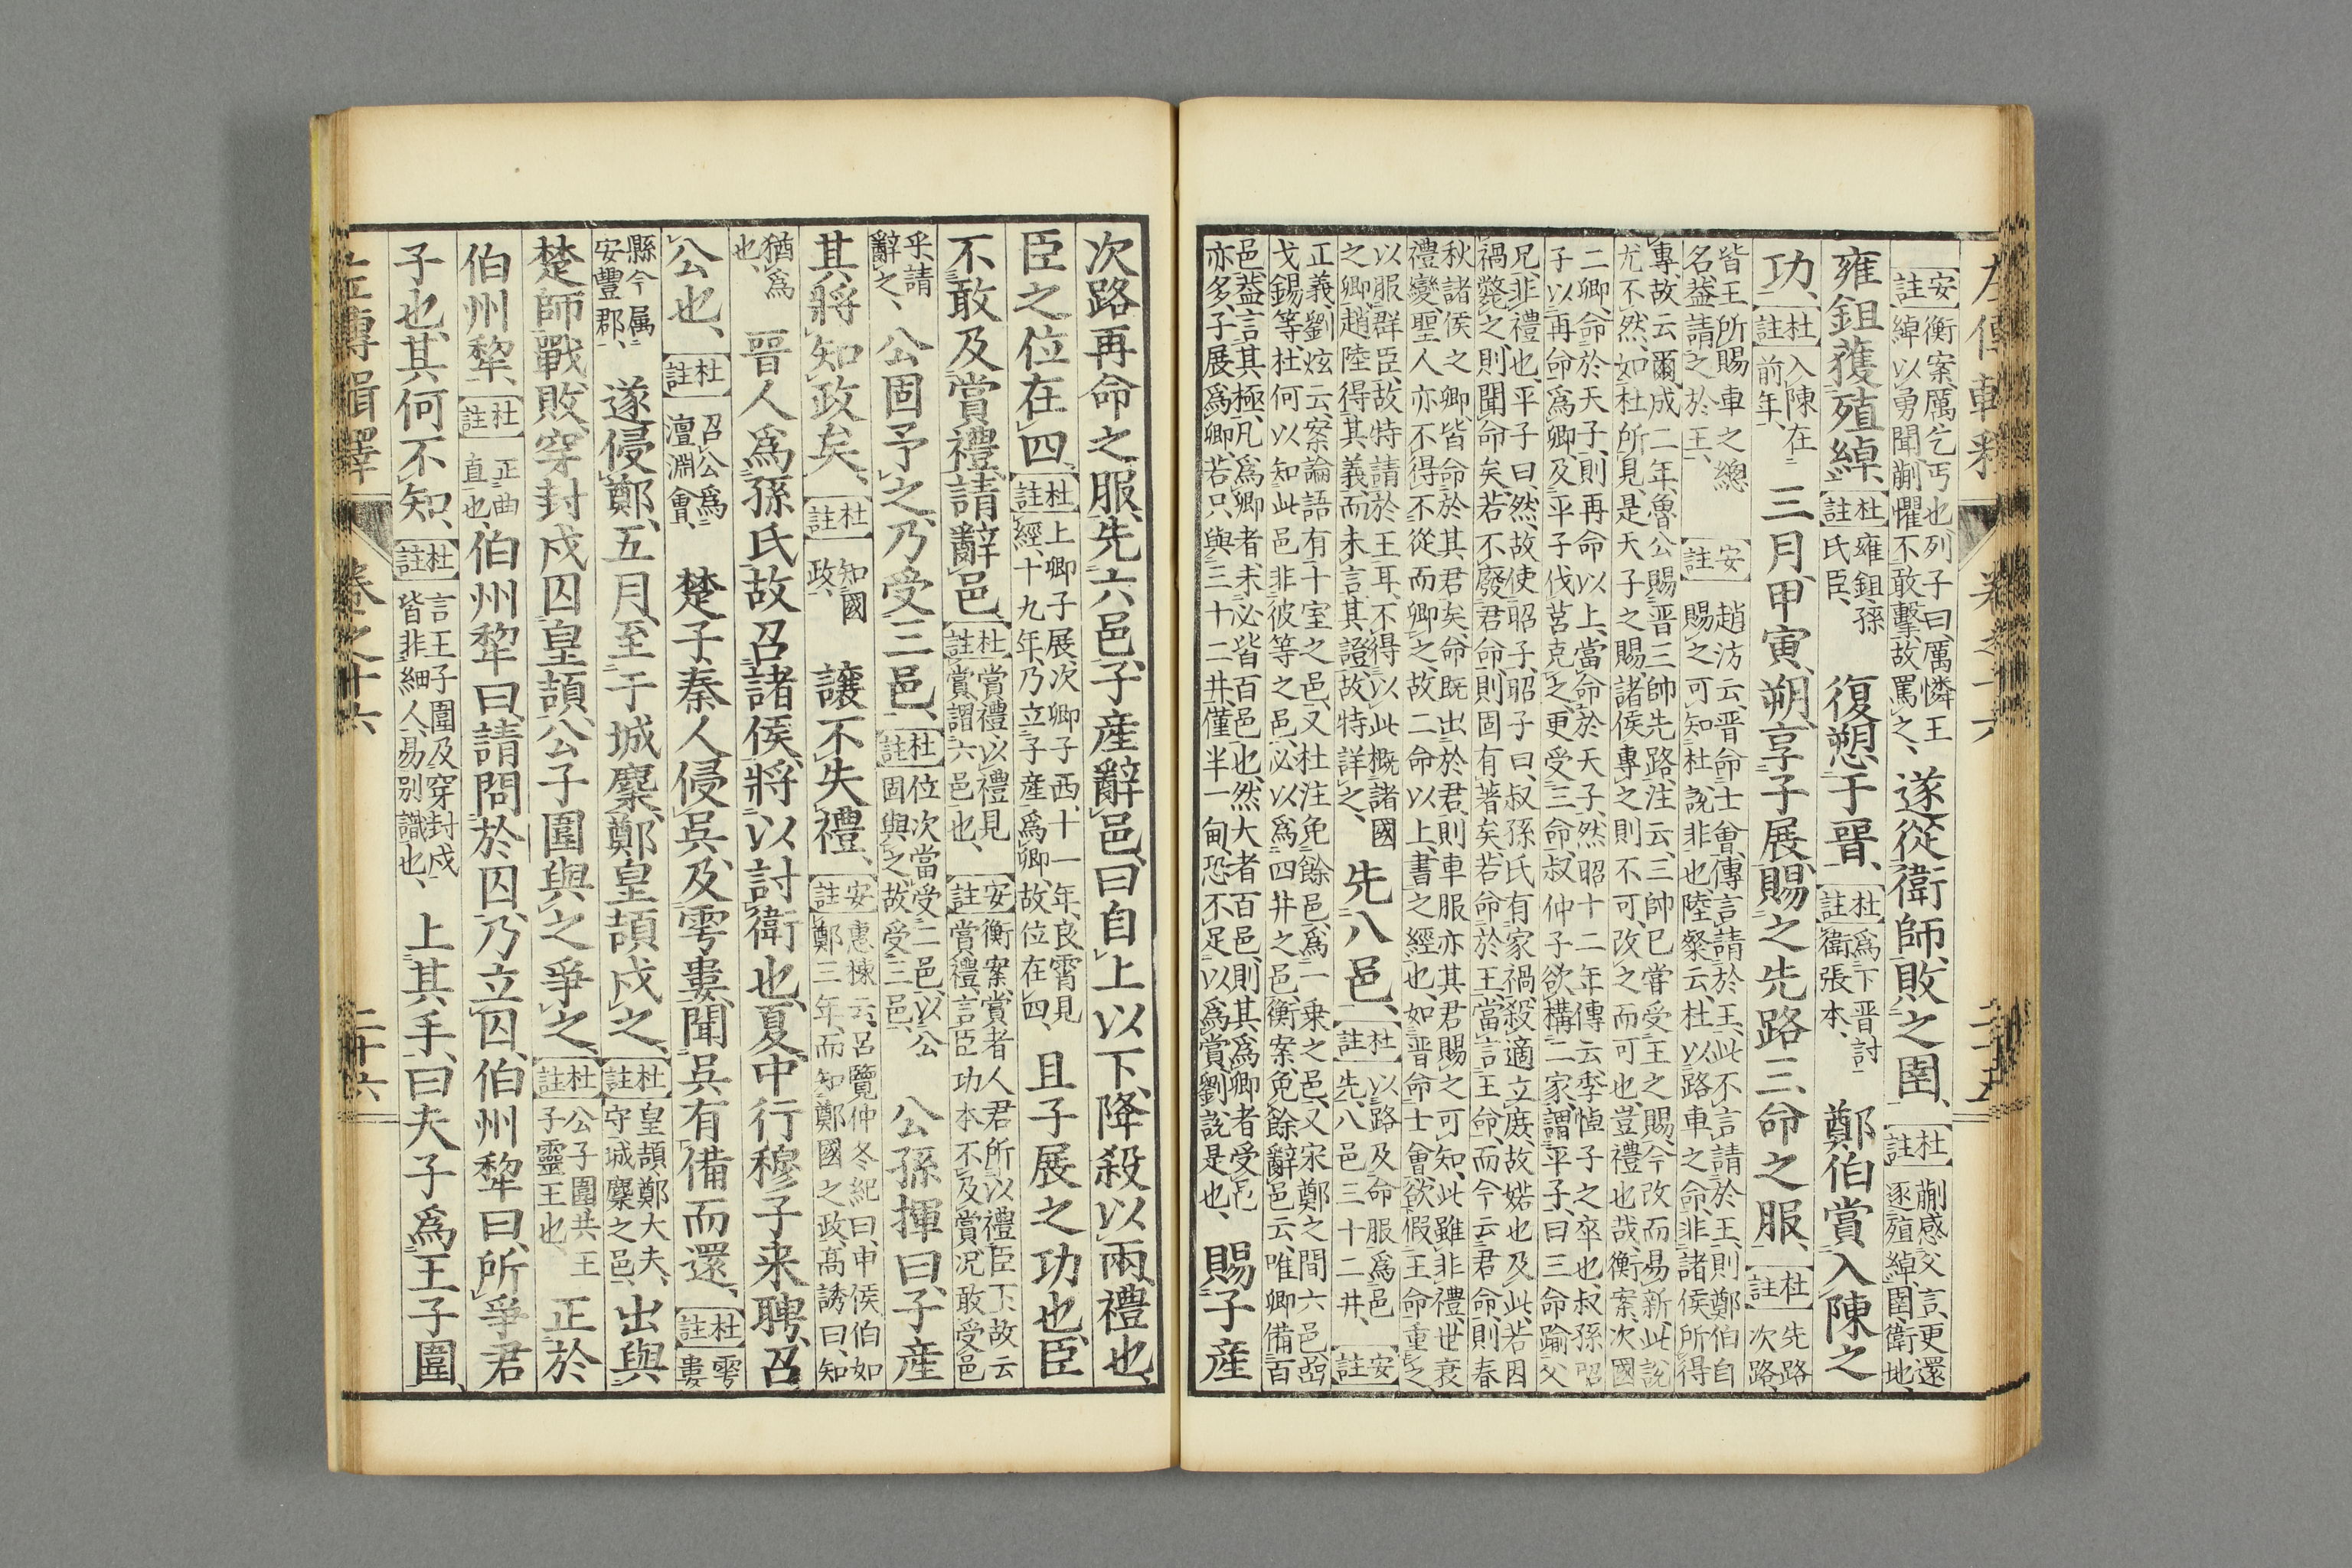 左傳輯釋 卷之十六 二十五
【安註】衡案厲乞丐也、列子曰、厲憐王
綽以勇聞、蒯懼不敢擊、故罵之、
遂從衛師、敗之圉、【杜註】蒯感父言、更還
逐殖綽、圉、衛地、
雍鉏獲殖綽、【杜註】雍鉏、孫
氏臣、
復愬于晉、【杜註】為下晉討
衛張本、
鄭伯賞入陳之
功、【杜註】入陳在
前年、
三月、甲寅、朔、享子展、賜之先路三命之服、【杜註】先路
次路、
皆王所賜車之總
名、蓋請之於王、
【安註】趙汸云、晉命士會、傳言請於王、此不言請於王、則鄭伯自
賜之可知、杜說非也、陸粲云、杜以路車之命、非諸侯所得
專、故云爾、成二年、魯公賜晉三帥先路、注云、三帥已嘗受王之賜、今改而易新、此說
尤不然、如杜所見、是天子之賜、諸侯專之則不可、改之而可也、豈禮也哉、衡案、次國
二卿、命於天子、則再命以上、當命於天子、然昭十二年傳云、季悼子之卒也、叔孫昭
子以再命爲卿、及平子伐莒克之、更受三命、叔仲子欲構二家、謂平子曰、三命踰父
兄、非禮也、平子曰、然、故使昭子、昭子曰、叔孫氏有家禍、殺適立庶、故婼也及此、若因
禍斃之、則聞命矣、若不廢君命、則固有著矣、若命於王、當言王命、而今云君命、則春
秋諸侯之卿、皆命於其君矣、命既出於君、則車服亦其君賜之可知、此雖非禮、世衰
禮變、聖人亦不得不從而卿之、故二命以上、書之經也、如晉命士會、欲假王命重之
以服群臣、故特請於王耳、不得以此概諸國
之卿、趙陸得其義、而未言其證、故特詳之、
先八邑、【杜註】以路及命服爲邑
先、八邑三十二井、
【安註】
正義、劉炫云、案論語有十室之邑、又杜注免餘邑、爲一乘之邑、又宋鄭之間六邑、嵒
戈錫等、杜何以知此邑非彼等之邑、必以爲四井之邑、衡案、免餘辭邑云、唯卿備百
邑、蓋言其極、凡爲卿者、未必皆百邑也、然大者百邑、則其爲卿者受邑
亦多、子展爲卿、若只與三十二井、僅半一甸、恐不足以爲賞、劉說是也、
賜子産
次路再命之服、先六邑、子産辭邑、曰、自上以下、降殺以兩、禮也、
臣之位在四、【杜註】上卿子展、次卿子西、十一年、良霄見
經、十九年、乃立子産爲卿、故位在四、
且子展之功也、臣
不敢及賞禮、請辭邑、【杜註】賞禮、以禮見
賞、謂六邑也、
【安註】衡案、賞者人君所以禮臣下、故云
賞禮、言臣功本不及賞、况敢受邑
乎、請
辭之、
公固予之、乃受三邑、【杜註】位次當受二邑、以公
固與之、故受三邑、
公孫揮曰、子産
其將知政矣、【杜註】知國
政、
讓不失禮、【安註】惠棟云、呂覽仲冬紀曰、申侯伯如
鄭三年、而知鄭國之政、高誘曰、知
猶爲
也、
晉人爲孫氏故、召諸侯、將以討衛也、夏、中行穆子来聘、召
公也、【杜註】召公爲
澶淵會、
楚子、秦人侵吳、及雩婁、聞吳有備而還、【杜註】雩
婁
縣、今屬
安豐郡、
遂侵鄭、五月、至于城麇、鄭皇頡戍之、【杜註】皇頡、鄭大夫、
守城麇之邑、
出與
楚師戰敗、穿封戍囚皇頡、公子圍與之爭之、【杜註】公子圍、共王
子靈王也、
正於
伯州犂、【杜註】正曲
直也、
伯州犂曰、請問於囚、乃立囚、伯州犂曰、所爭君
子也、其何不知、【杜註】言王子圍及穿封戍
皆非細人、易別識也、
上其手、曰、夫子爲王子圍、
左傳輯釋 卷之十六 二十六